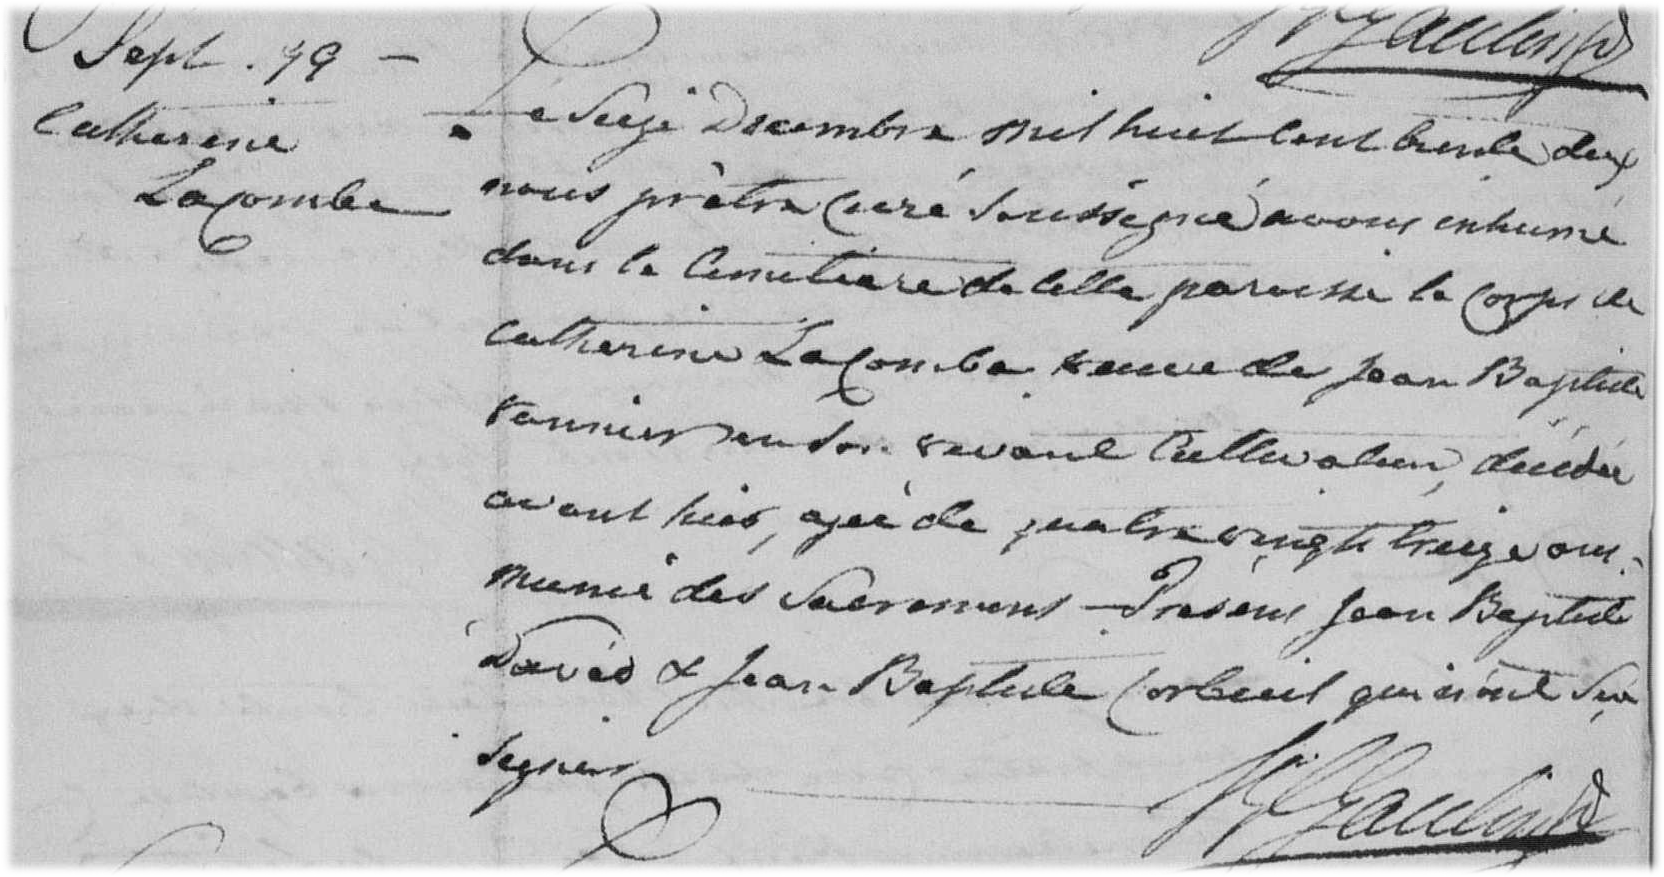 Sept. 79 –
Catherine
Lacombe
Le Seize Decembre mil huit cent trente deux
nous prêtre Curé Soussigné avons inhumé
dans le Cimetiere de cette paroisse le corps de
Catherine Lacombe veuve de Jean Baptiste
vannier en son vivant Cultivateur, décédée
avant hier, agée de quatre vingts treize ans.
munie des Sacremens – Présens Jean Baptiste
David & Jean Baptiste Corbeil qui n'ont Su
signer
Gaulin ptr